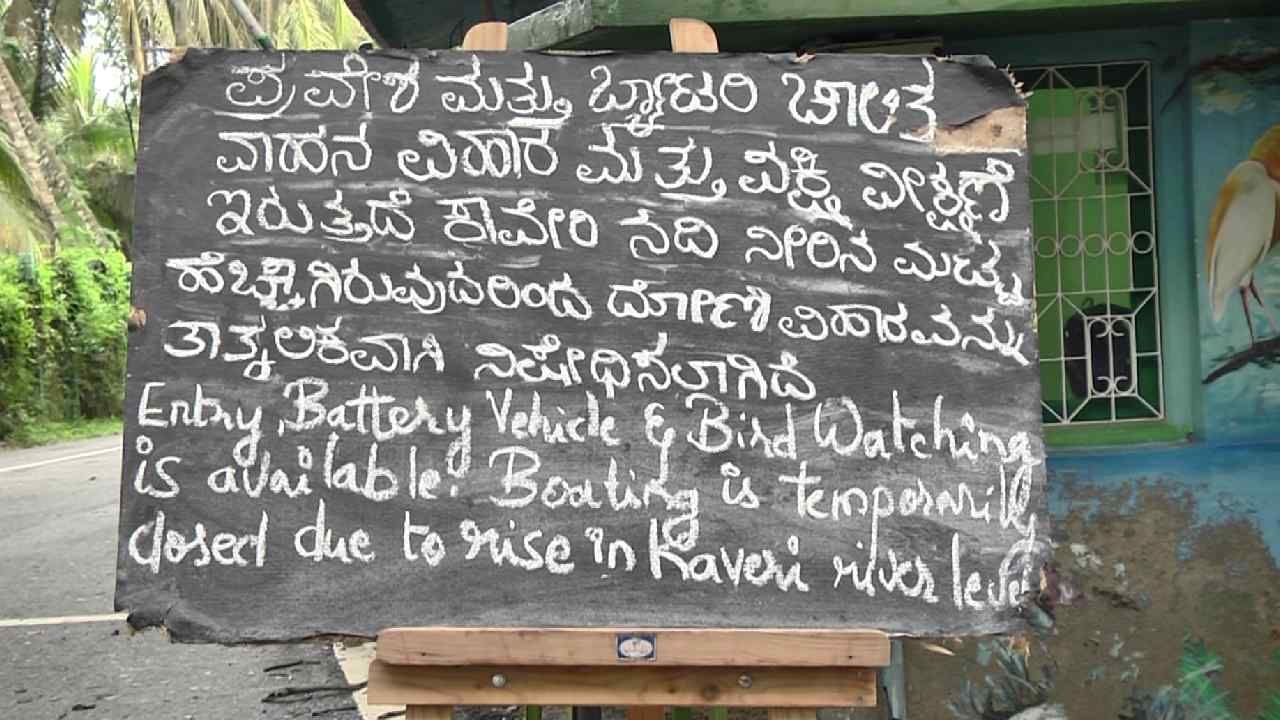 ಪ್ರವೇಶ ಮತ್ತು ಬ್ಯಾಟರಿ ಚಾಲಿತ
ವಾಹನ ವಿಹಾರ ಮತ್ತು ಪಕ್ಷಿ ವೀಕ್ಷಣೆ
ಇರುತ್ತದೆ ಕಾವೇರಿ ನದಿ ನೀರಿನ ಮಟ್ಟ
ಹೆಚ್ಚಾಗಿರುವುದರಿಂದ ದೋಣಿ ವಿಹಾರವನ್ನು
ತಾತ್ಕಲಿಕವಾಗಿ ನಿಷೇಧಿಸಲಾಗಿದೆ
Entry, Battery Vehicle & Bird Watching
is available. Boating is temporarily
closed due to rise in Kaveri river level